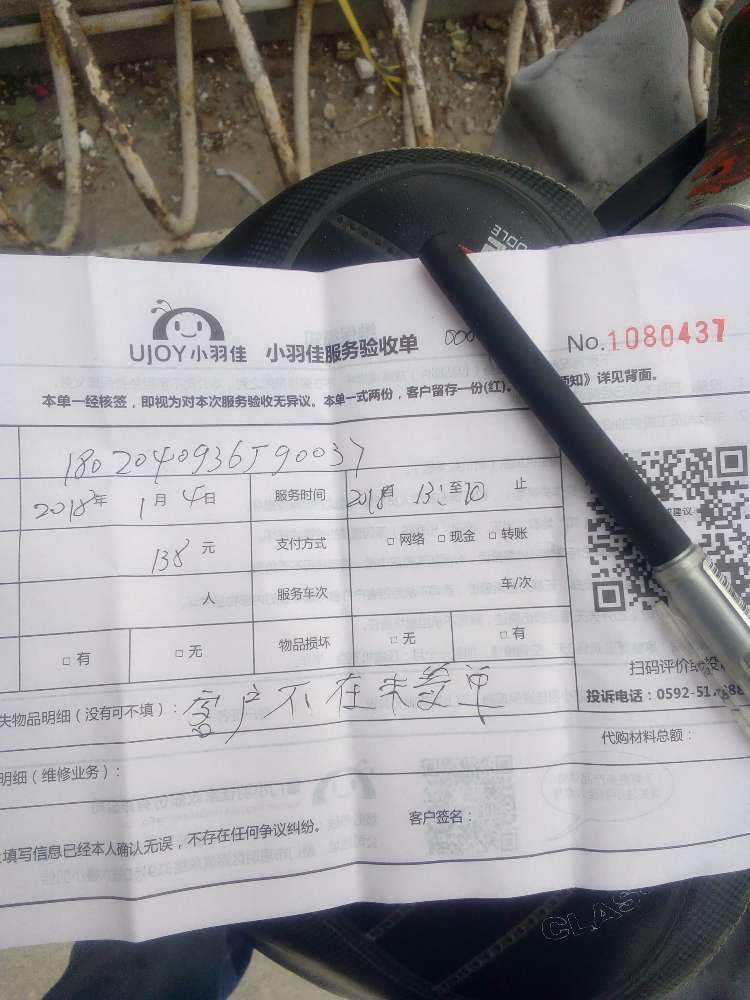 UJOY小羽佳 小羽佳服务验收单
No.1080437
本单一经核签，即视为对本次服务验收无异议。本单一式两份，客户留存一份(红)。 知》详见背面。
1802040936590037
2018年 1月 4日 服务时间 2018 13:至 止
138元 支付方式 □网络 □现金 □转账
人 服务车次 车/次
□有 □无 物品损坏 □无 □有
扫码评价
失物品明细（没有可不填）： 客户不在未签单
投诉电话：0592-51 88
代购材料总额：
明细（维修业务）：
客户签名：
填写信息已经本人确认无误，不存在任何争议纠纷。
CLAS